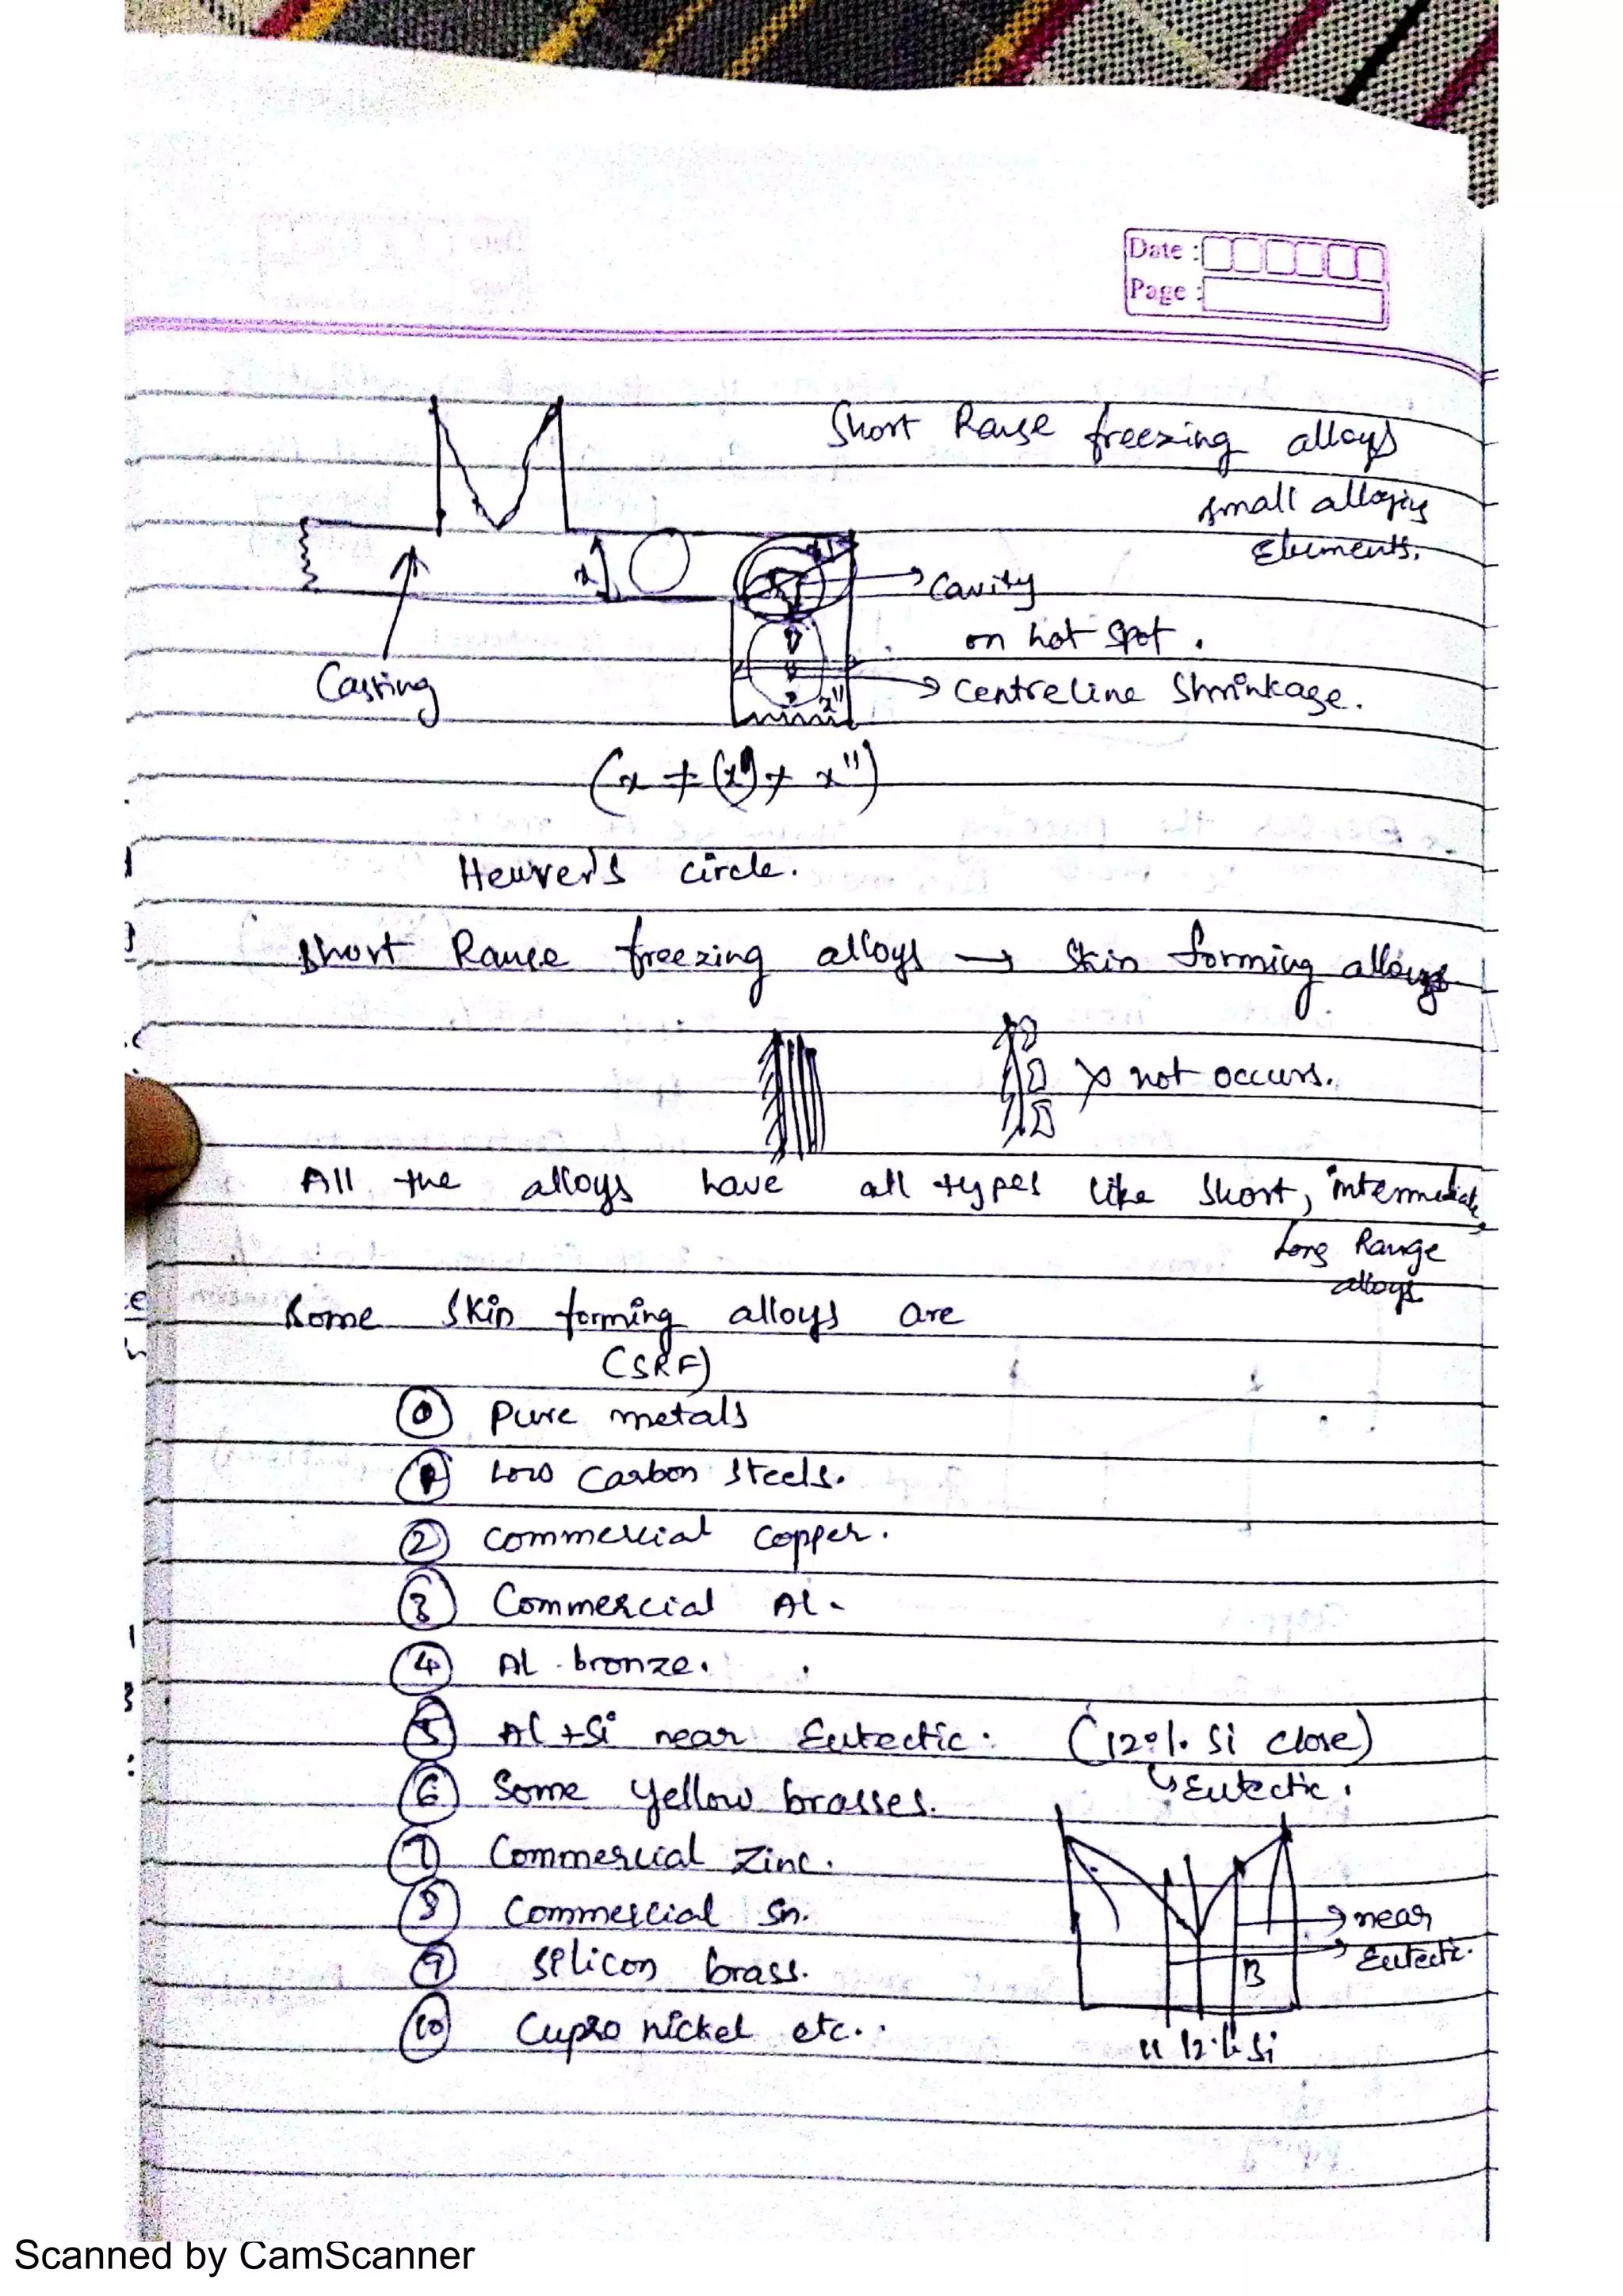 Date :
Page :
Short Range freezing alloys
small alloying
Elements.
x
x'
Cavity
on hot spot.
Casting
Centreline Shrinkage.
x"
(x ≠ (x') ≠ x")
Heuver's circle.
Short Range freezing alloys → Skin forming alloys
X not occurs.
All the alloys have all types like Short, intermediate,
Long Range
alloys
Some Skin forming alloys are
(SRF)
0 Pure metals
1 Low Carbon Steels.
2 Commercial Copper.
3 Commercial Al.
4 Al bronze.
5 Al + Si near Eutectic. (12% Si close)
↳ Eutectic.
6 Some Yellow brasses.
7 Commercial Zinc.
8 Commercial Sn.
near
9 Silicon brass.
B
Eutectic.
10 Cupro nickel etc..
11 12% Si
Scanned by CamScanner